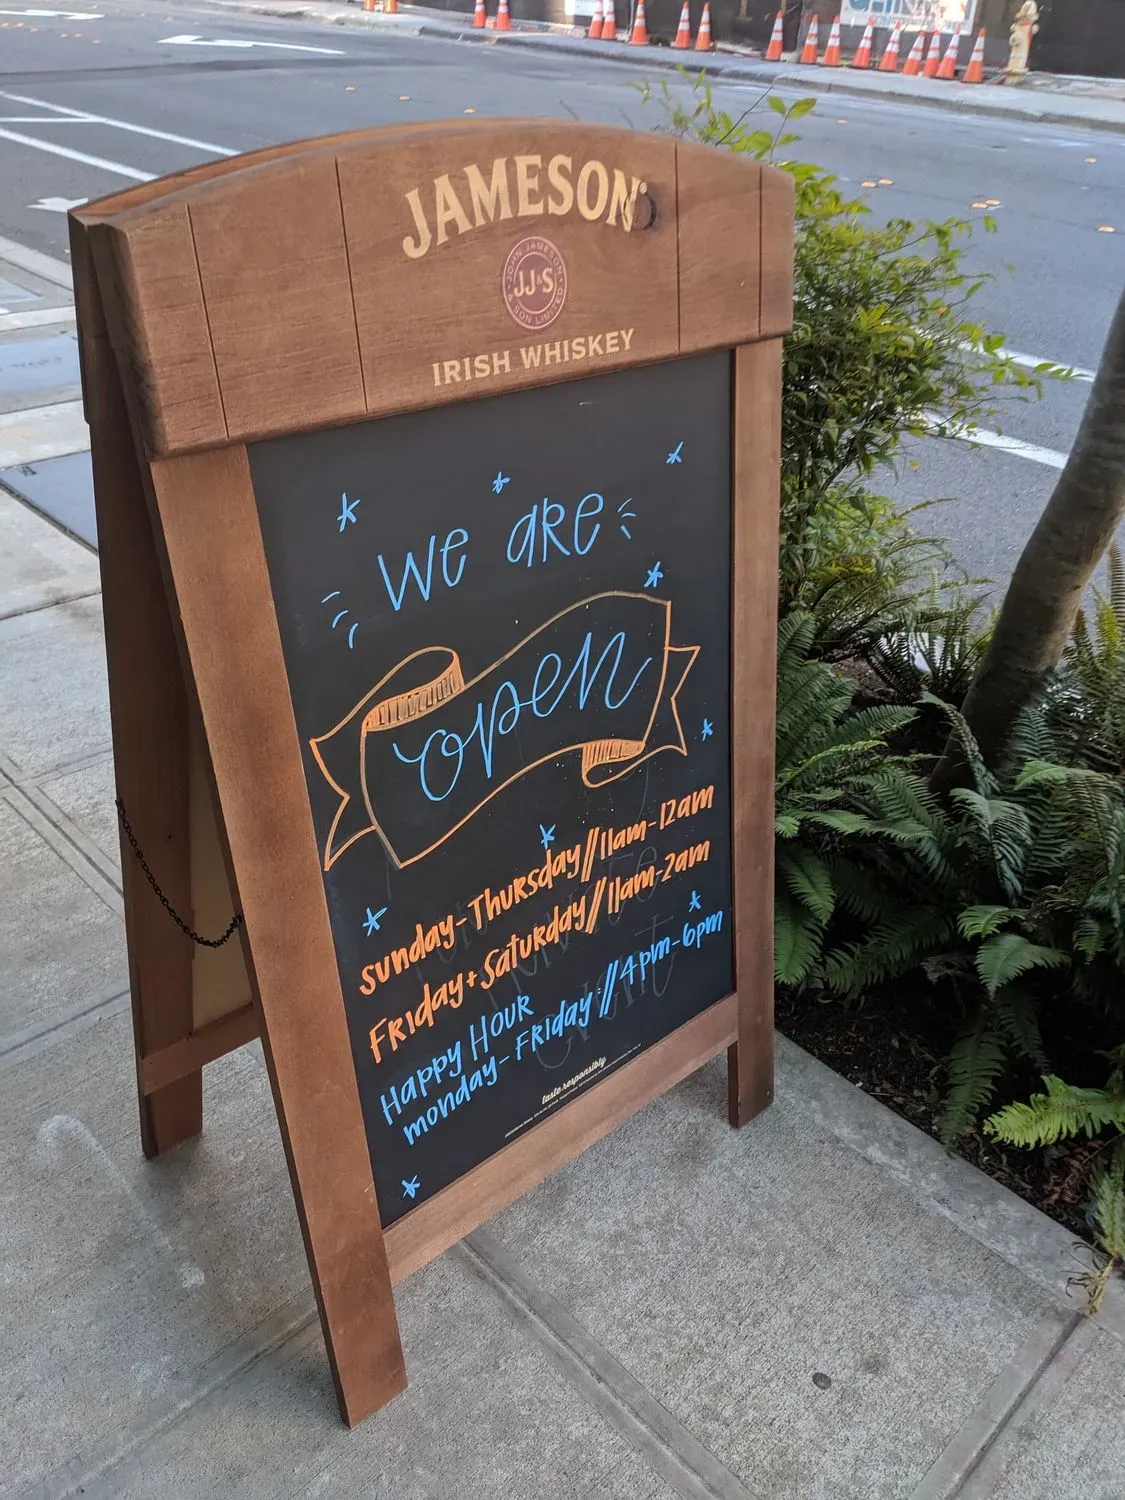 JAMESON
JOHN JAMESON
JJ&S
& SON LIMITED
IRISH WHISKEY
we are
open
sunday-Thursday//11am-12am
Friday+Saturday//11am-2am
Happy Hour
monday-Friday://4pm-6pm
taste responsibly